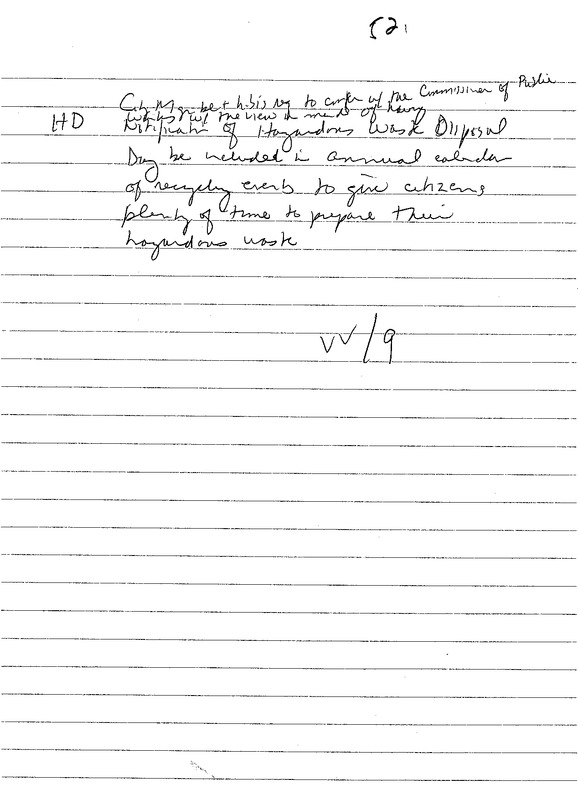 52.
Ch Mgr be + h-sis req to confer w/ the Commissioner of Public
Works w/ the view in mind of having
HD Notification of Hazardous Waste Disposal
Day be included in annual calendar
of recycling events to give citizens
plenty of time to prepare their
hazardous waste
VV/9